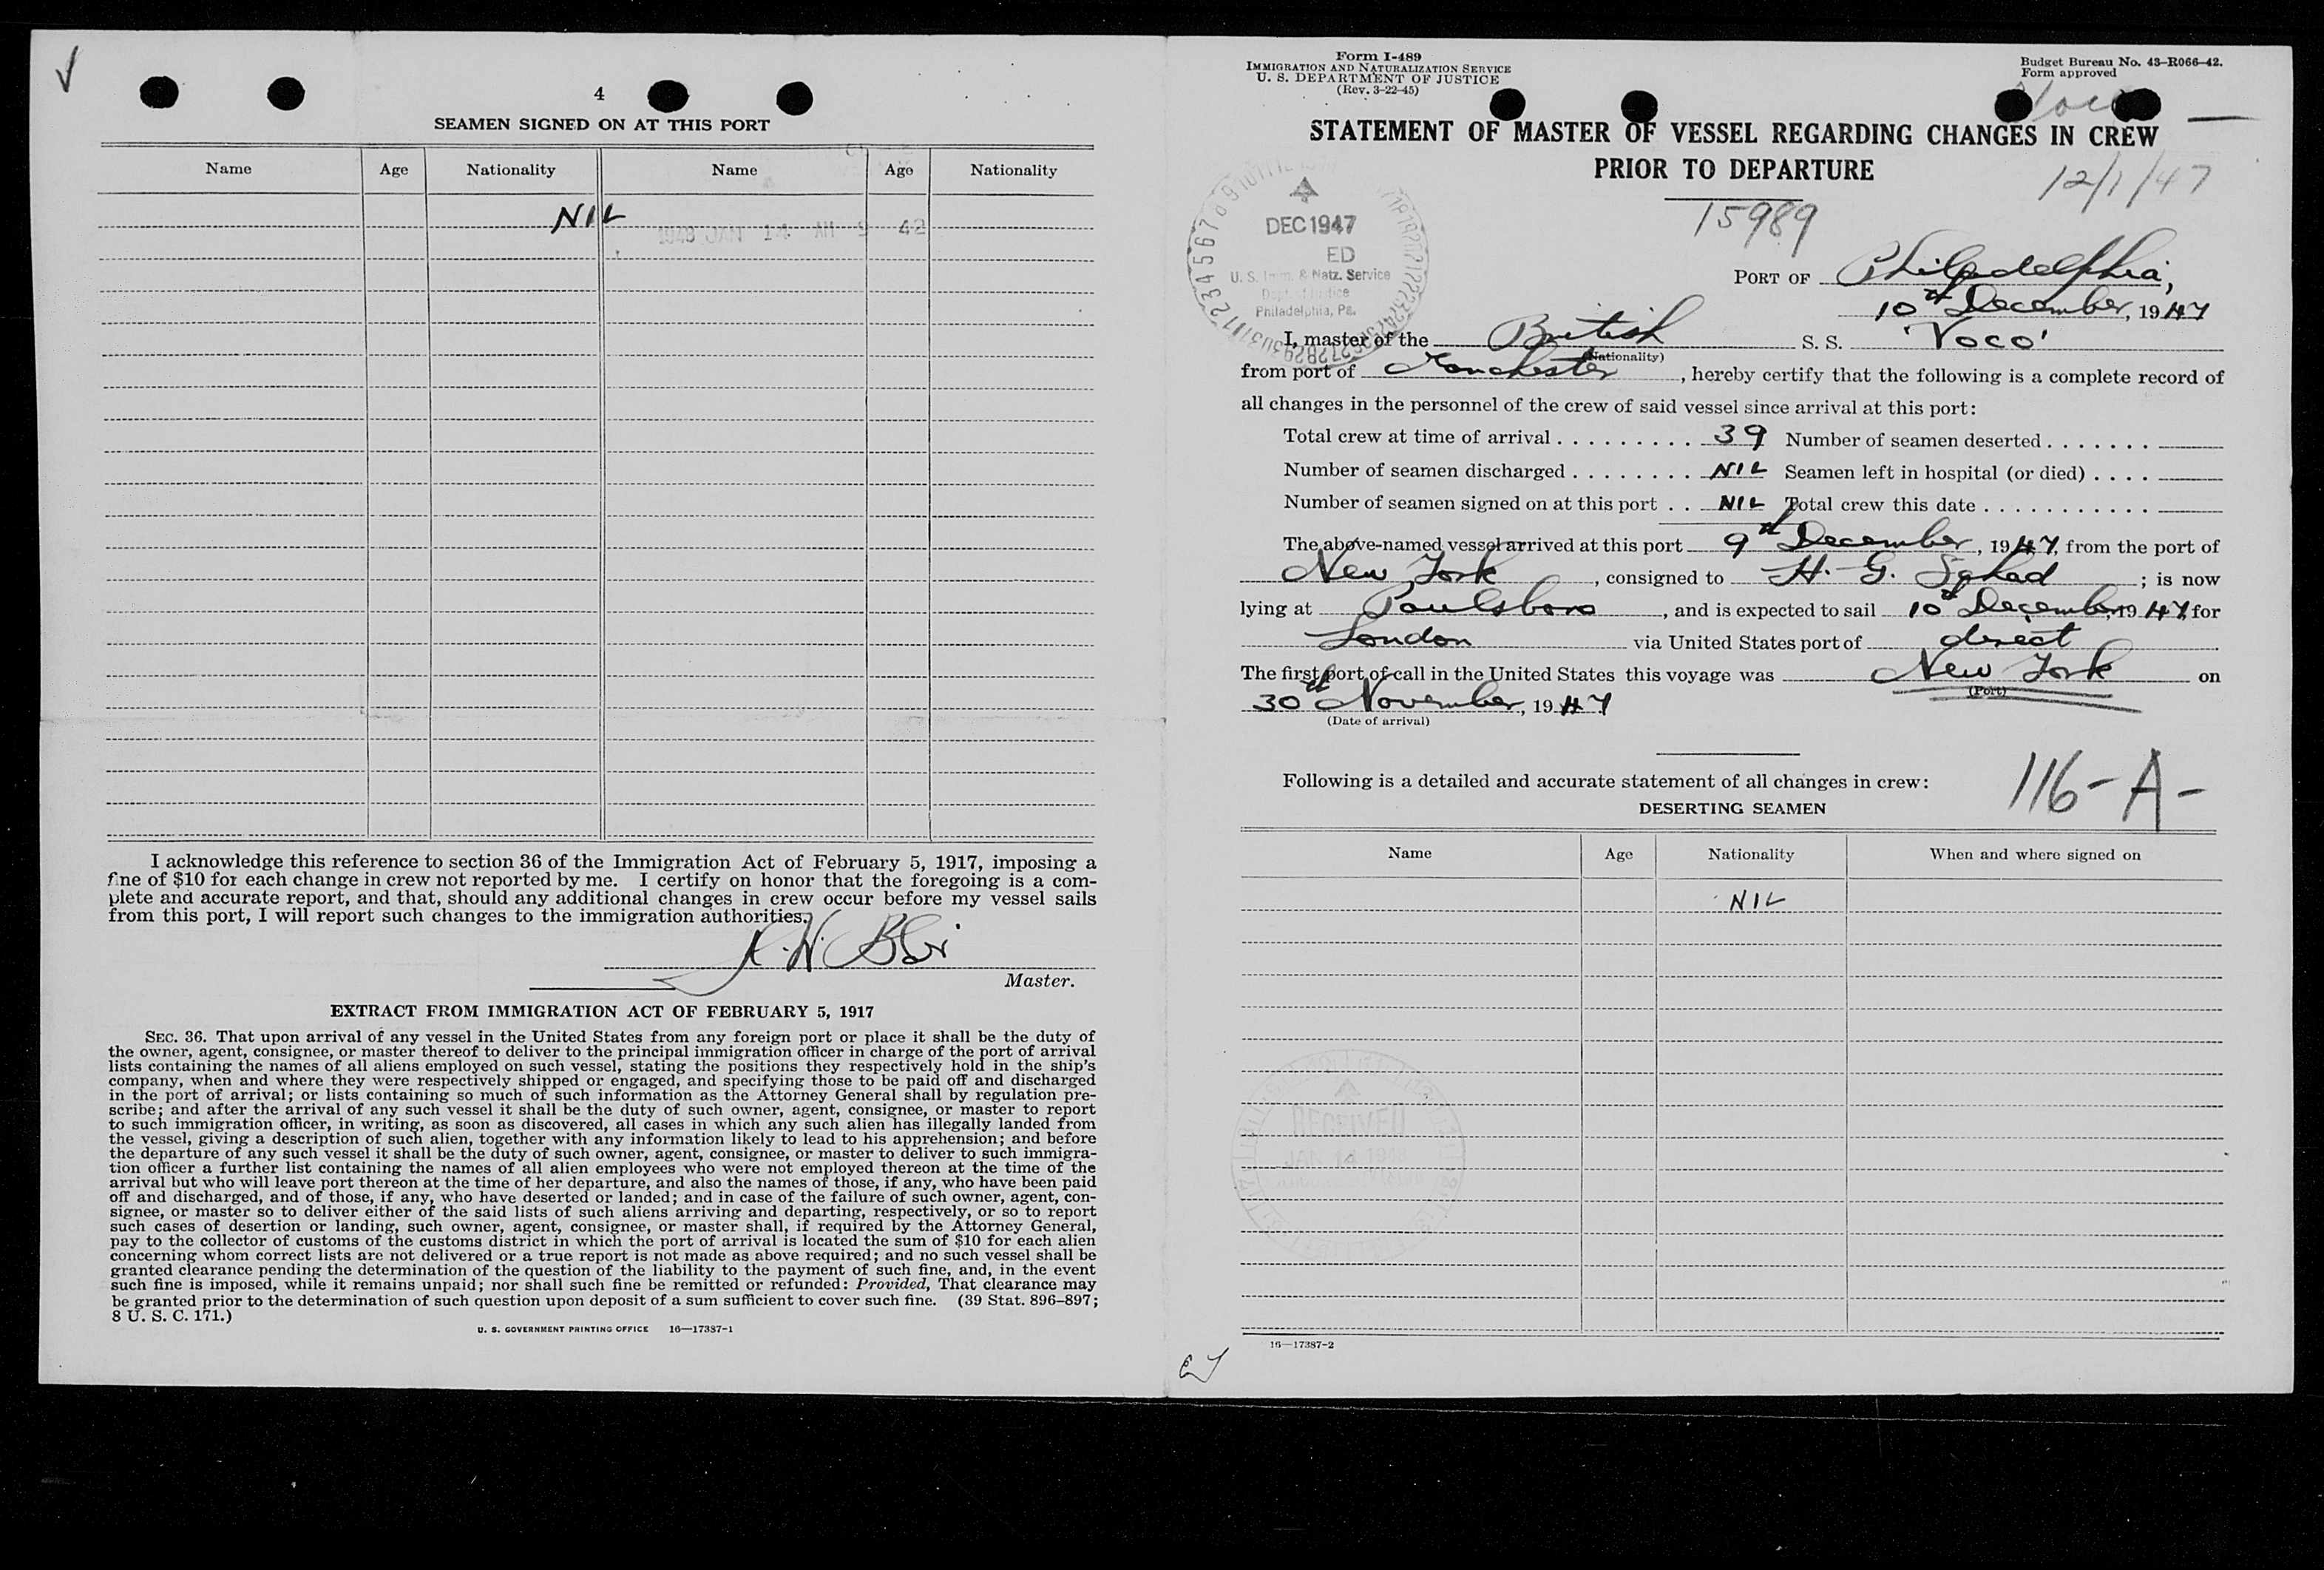 4
SEAMEN SIGNED ON AT THIS PORT
Name Age Nationality Name Age Nationality
NIL
1948 JAN 14 AM 9 42
I acknowledge this reference to section 36 of the Immigration Act of February 5, 1917, imposing a
fine of $10 for each change in crew not reported by me. I certify on honor that the foregoing is a com-
plete and accurate report, and that, should any additional changes in crew occur before my vessel sails
from this port, I will report such changes to the immigration authorities.
Master.
EXTRACT FROM IMMIGRATION ACT OF FEBRUARY 5, 1917
SEC. 36. That upon arrival of any vessel in the United States from any foreign port or place it shall be the duty of
the owner, agent, consignee, or master thereof to deliver to the principal immigration officer in charge of the port of arrival
lists containing the names of all aliens employed on such vessel, stating the positions they respectively hold in the ship's
company, when and where they were respectively shipped or engaged, and specifying those to be paid off and discharged
in the port of arrival; or lists containing so much of such information as the Attorney General shall by regulation pre-
scribe; and after the arrival of any such vessel it shall be the duty of such owner, agent, consignee, or master to report
to such immigration officer, in writing, as soon as discovered, all cases in which any such alien has illegally landed from
the vessel, giving a description of such alien, together with any information likely to lead to his apprehension; and before
the departure of any such vessel it shall be the duty of such owner, agent, consignee, or master to deliver to such immigra-
tion officer a further list containing the names of all alien employees who were not employed thereon at the time of the
arrival but who will leave port thereon at the time of her departure, and also the names of those, if any, who have been paid
off and discharged, and of those, if any, who have deserted or landed; and in case of the failure of such owner, agent, con-
signee, or master so to deliver either of the said lists of such aliens arriving and departing, respectively, or so to report
such cases of desertion or landing, such owner, agent, consignee, or master shall, if required by the Attorney General,
pay to the collector of customs of the customs district in which the port of arrival is located the sum of $10 for each alien
concerning whom correct lists are not delivered or a true report is not made as above required; and no such vessel shall be
granted clearance pending the determination of the question of the liability to the payment of such fine, and, in the event
such fine is imposed, while it remains unpaid; nor shall such fine be remitted or refunded: Provided, That clearance may
be granted prior to the determination of such question upon deposit of a sum sufficient to cover such fine. (39 Stat. 896-897;
8 U. S. C. 171.)
U. S. GOVERNMENT PRINTING OFFICE 16—17387-1
Form I-489
IMMIGRATION AND NATURALIZATION SERVICE
U. S. DEPARTMENT OF JUSTICE
(Rev. 3-22-45)
Budget Bureau No. 43-R066-42.
Form approved
Voco
STATEMENT OF MASTER OF VESSEL REGARDING CHANGES IN CREW
PRIOR TO DEPARTURE
12/1/47
15989
DEC 1947
ED
U. S. Imm. & Natz. Service
Dept. of Justice
Philadelphia, Pa.
PORT OF Philadelphia,
10th December, 1947
I, master of the British S. S. 'Voco'
(Nationality)
from port of Manchester, hereby certify that the following is a complete record of
all changes in the personnel of the crew of said vessel since arrival at this port:
Total crew at time of arrival . . . . . . . . . . 39 Number of seamen deserted . . . . . . .
Number of seamen discharged . . . . . . . . NIL Seamen left in hospital (or died) . . . .
Number of seamen signed on at this port . . NIL Total crew this date . . . . . . . . . . .
The above-named vessel arrived at this port 9th December, 1947, from the port of
New York, consigned to H. G.; is now
lying at Paulsboro, and is expected to sail 10th December, 1947, for
London via United States port of direct
The first port of call in the United States this voyage was New York on
(Port)
30th November, 1947
(Date of arrival)
Following is a detailed and accurate statement of all changes in crew:
116-A-
DESERTING SEAMEN
Name Age Nationality When and where signed on
NIL
RECEIVED
JAN 14 1948
16—17387-2